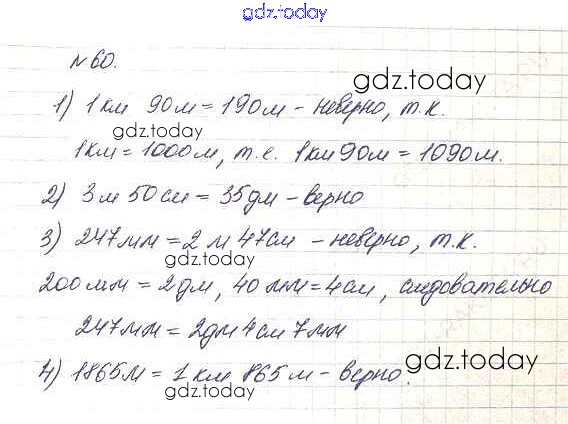 gdz.today
№60.
gdz.today
1) 1км 90м = 190м - неверно, т.к.
gdz.today
1км = 1000м, т.е. 1км90м = 1090м.
2) 3м 50см = 35дм - верно
3) 247мм = 2м 47см - неверно, т.к.
gdz.today
200мм = 2дм, 40мм = 4см, следовательно
247мм = 2дм 4см 7мм
gdz.today
4) 1865м = 1км 865м - верно.
gdz.today